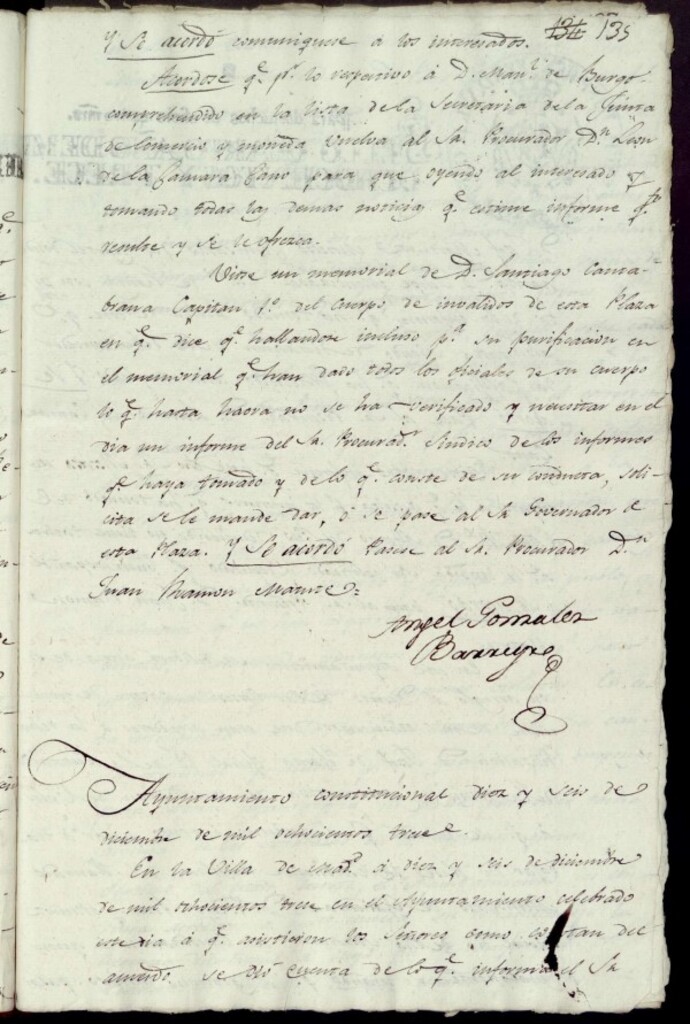 134 135
Y Se acordó comuniquese á los interesados.
Acordose q.e p.r lo respectivo á D. Man.l de Burgo
comprehendido en la lista de la Secretaria de la Junta
de Comercio y moneda vuelva al Sr. Procurador D.n Leon
de la Camara Cano para que oyendo al interesado y
tomando todas las demas noticias q.e estime informe q.to
resulte y se le ofrezca.
Viose un memorial de D. Santiago Canta-
brana Capitan 1.o del Cuerpo de invalidos de esta Plaza
en q.e dice q.e hallandose incluso p.a su purificacion en
el memorial q.e han dado todos los oficiales de su cuerpo
lo q.e hasta haora no se ha verificado y necesitar en el
dia un informe del Sr. Procurad.r Sindico de los informes
q.e haya tomado y de lo q.e conste de su conducta, soli-
cita se le mande dar, ó se pase al Sr. Governador de
esta Plaza. Y Se acordó Pasase al Sr. Procurador D.n
Juan Ramon Matute=
Angel Gonzalez
Barreyro
Ayuntamiento constitucional diez y seis de
diciembre de mil ochocientos trece.
En la Villa de Mad.d á diez y seis de diciembre
de mil ochocientos trece en el Ayuntamiento celebrado
este dia á q.e asistieron los Señores como constan del
acuerdo se dió cuenta de lo q.e informa el Sr.